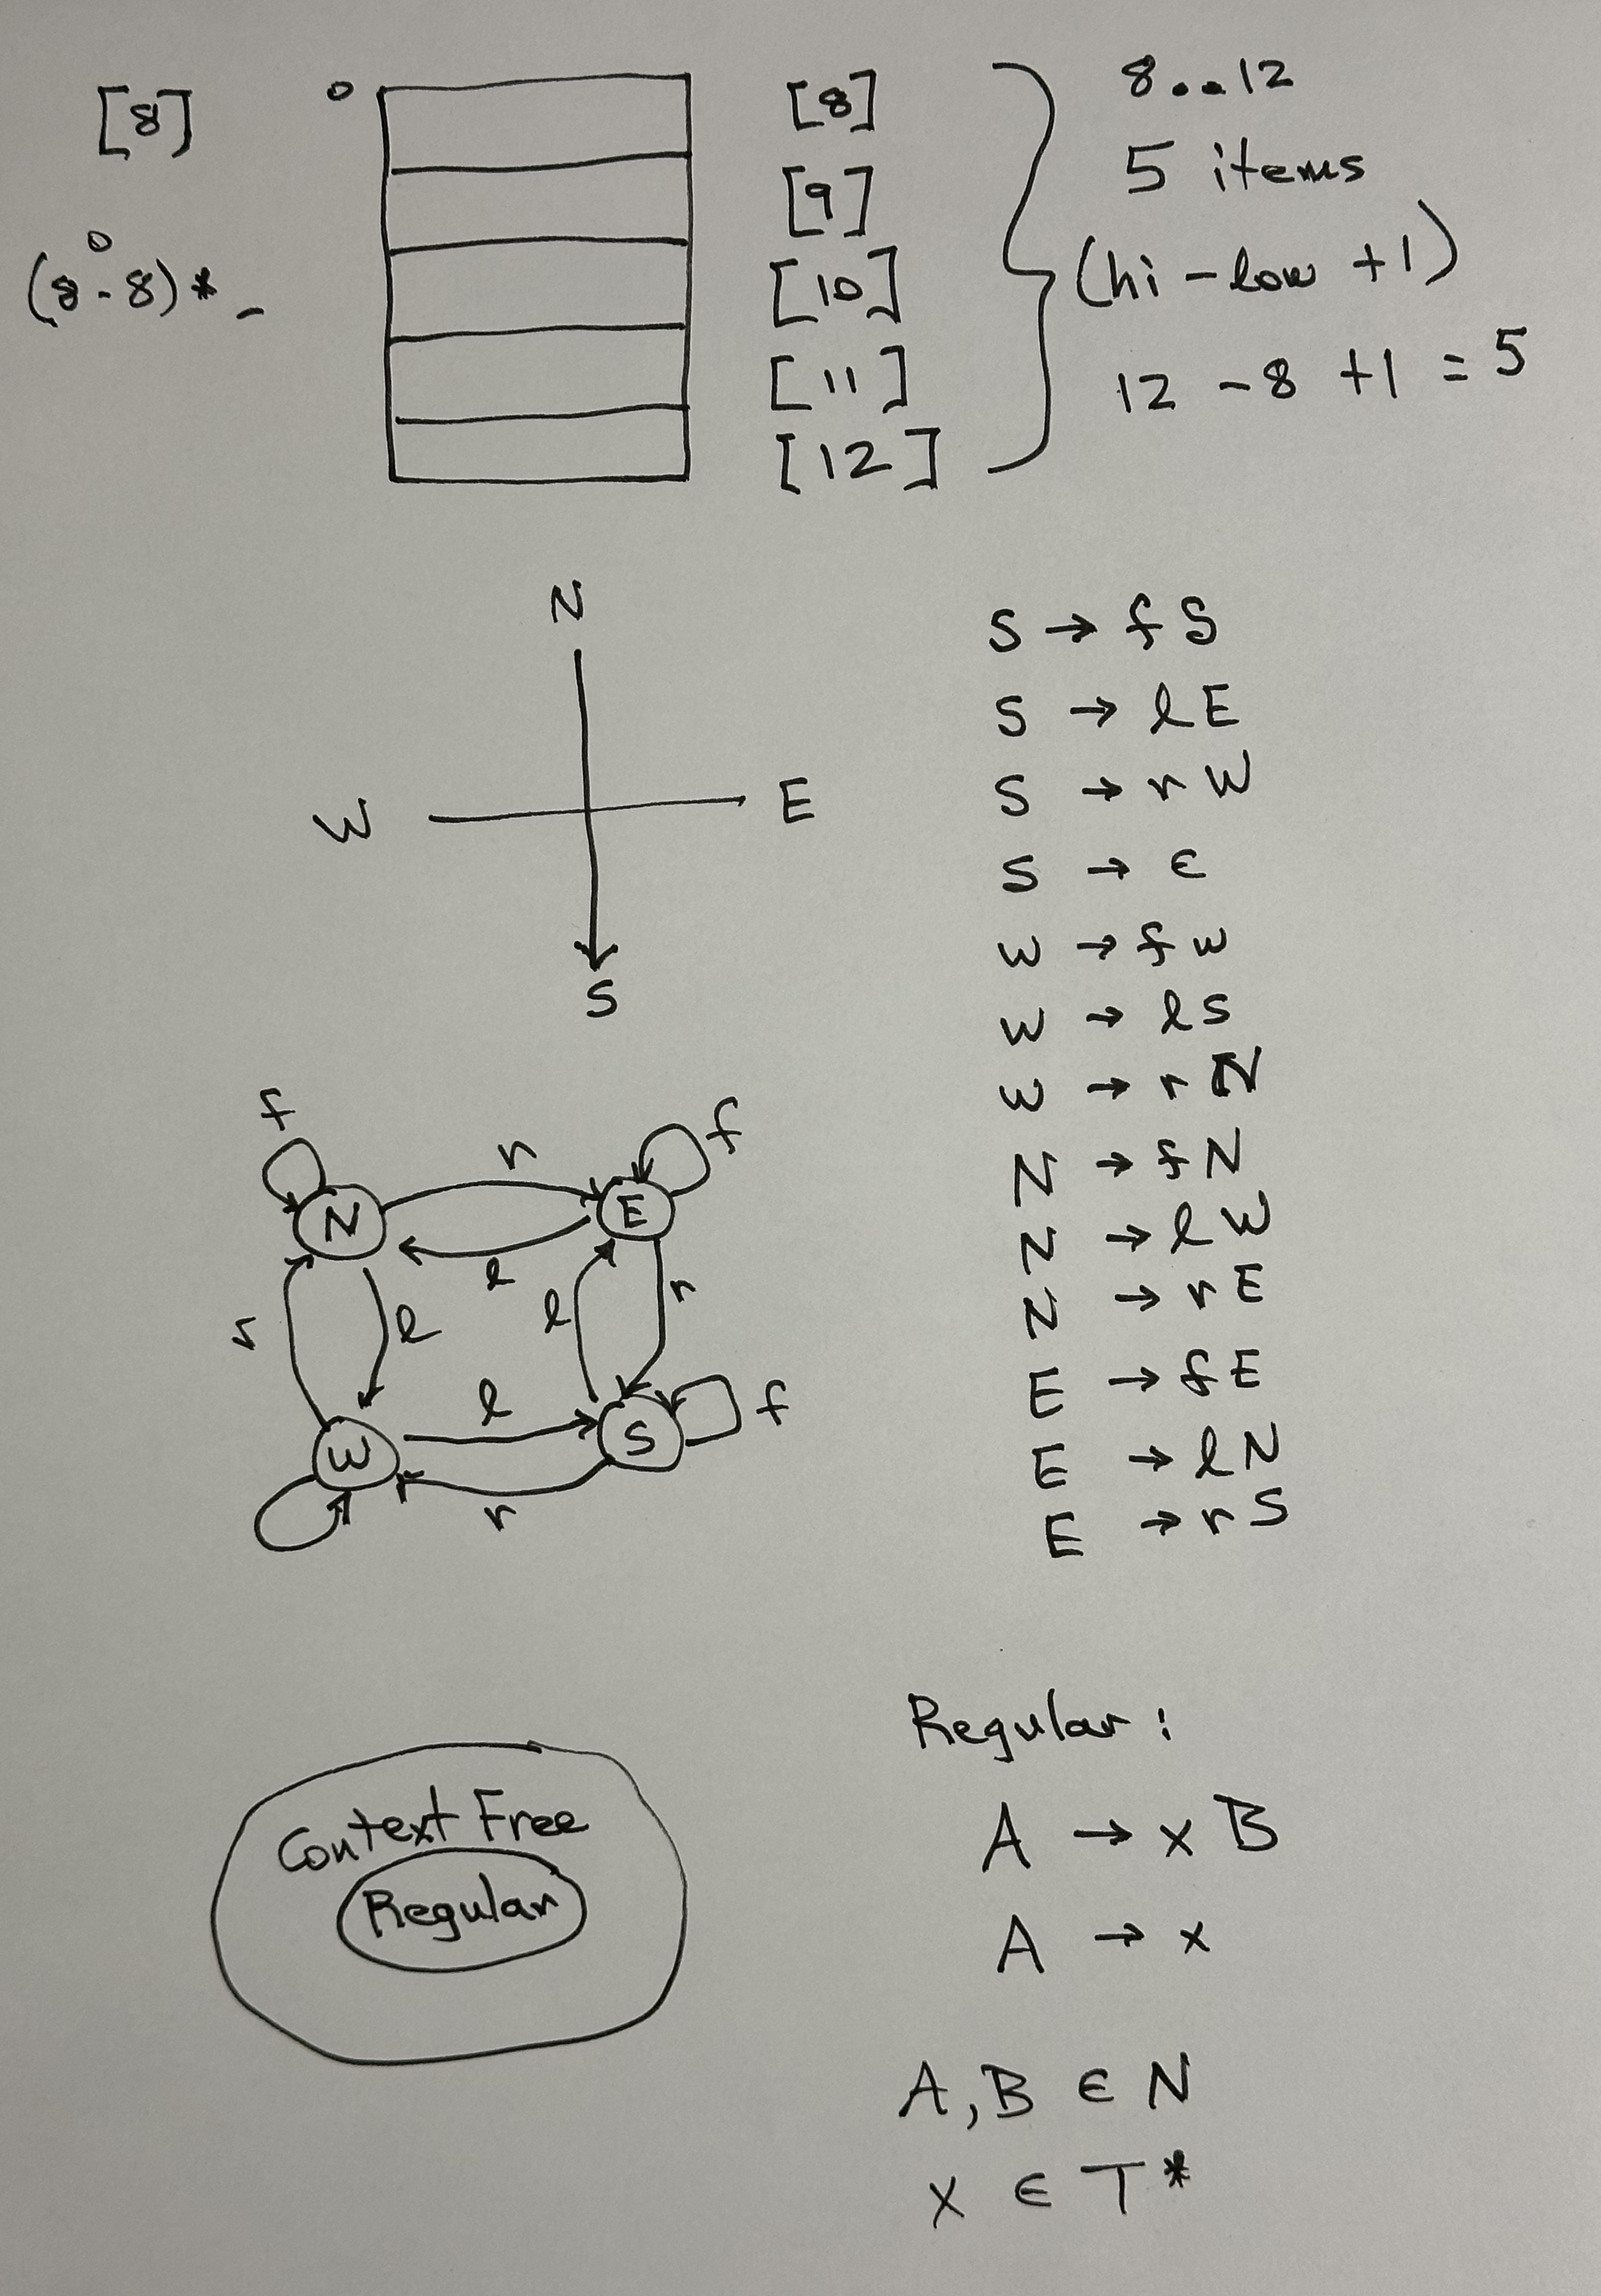 [8]
0
(8-8)* -
0
[8]
[9]
[10]
[11]
[12]
8..12
5 items
(hi - low + 1)
12 - 8 + 1 = 5
N
W
E
S
S → f S
S → l E
S → r W
S → ε
W → f W
W → l S
W → r N
N → f N
N → l W
N → r E
E → f E
E → l N
E → r S
f
f
r
N
E
l
r
l
l
r
l
f
W
S
r
Context Free
Regular
Regular:
A → x B
A → x
A, B ∈ N
x ∈ T*